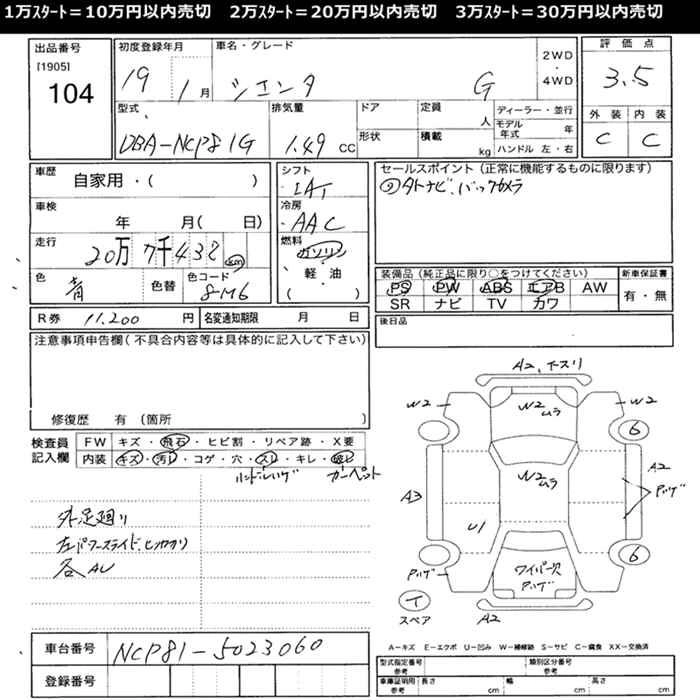 1万ｽﾀｰﾄ＝10万円以内売切　2万ｽﾀｰﾄ＝20万円以内売切　3万ｽﾀｰﾄ＝30万円以内売切
出品番号 初度登録年月 車名・グレード 2WD ・ 4WD 評価点
[1905]
104 19 1月 シエンタ G 3.5
型式 排気量 ドア 定員 人 ディーラー・並行 外装 内装
DBA-NCP81G 1.49 CC 形状 積載 kg モデル年式 年 C C
ハンドル 左・右
車歴 自家用・( ) シフト IAT セールスポイント (正常に機能するものに限ります)
車検 年 月( 日) 冷房 AAC ナビ、バックカメラ
走行 20万7千438 km 燃料 ガソリン
色 青 色替 色コード 8M6 軽・油 ( )
装備品 (純正品に限り○をつけてください) 新車保証書
PS PW ABS エアB AW 有・無
SR ナビ TV カワ
R券 11,200 円 名変通知期限 月 日 後日品
注意事項申告欄(不具合内容等は具体的に記入して下さい)
修復歴 有 (箇所 )
検査員記入欄 FW キズ・飛石・ヒビ割・リペア跡・X要
内装 キズ・汚レ・コゲ・穴・スレ・キレ・破レ
ハンドルハゲ カーペット
外足廻り
左パワースライド、
各AU
A2、下スリ
W2 W2ムラ W2
6
A3 W2ムラ A2
ハゲ
U1
ハゲ ワイパー欠 6
ハゲ
スペア A2
A－キズ E－エクボ U－凹み W－補修跡 S－サビ C－腐食 XX－交換済
車台番号 NCP81-5023060 型式指定番号 参考 類別区分番号 参考
登録番号 車庫証明用 参考 長さ cm 幅 cm 高さ cm